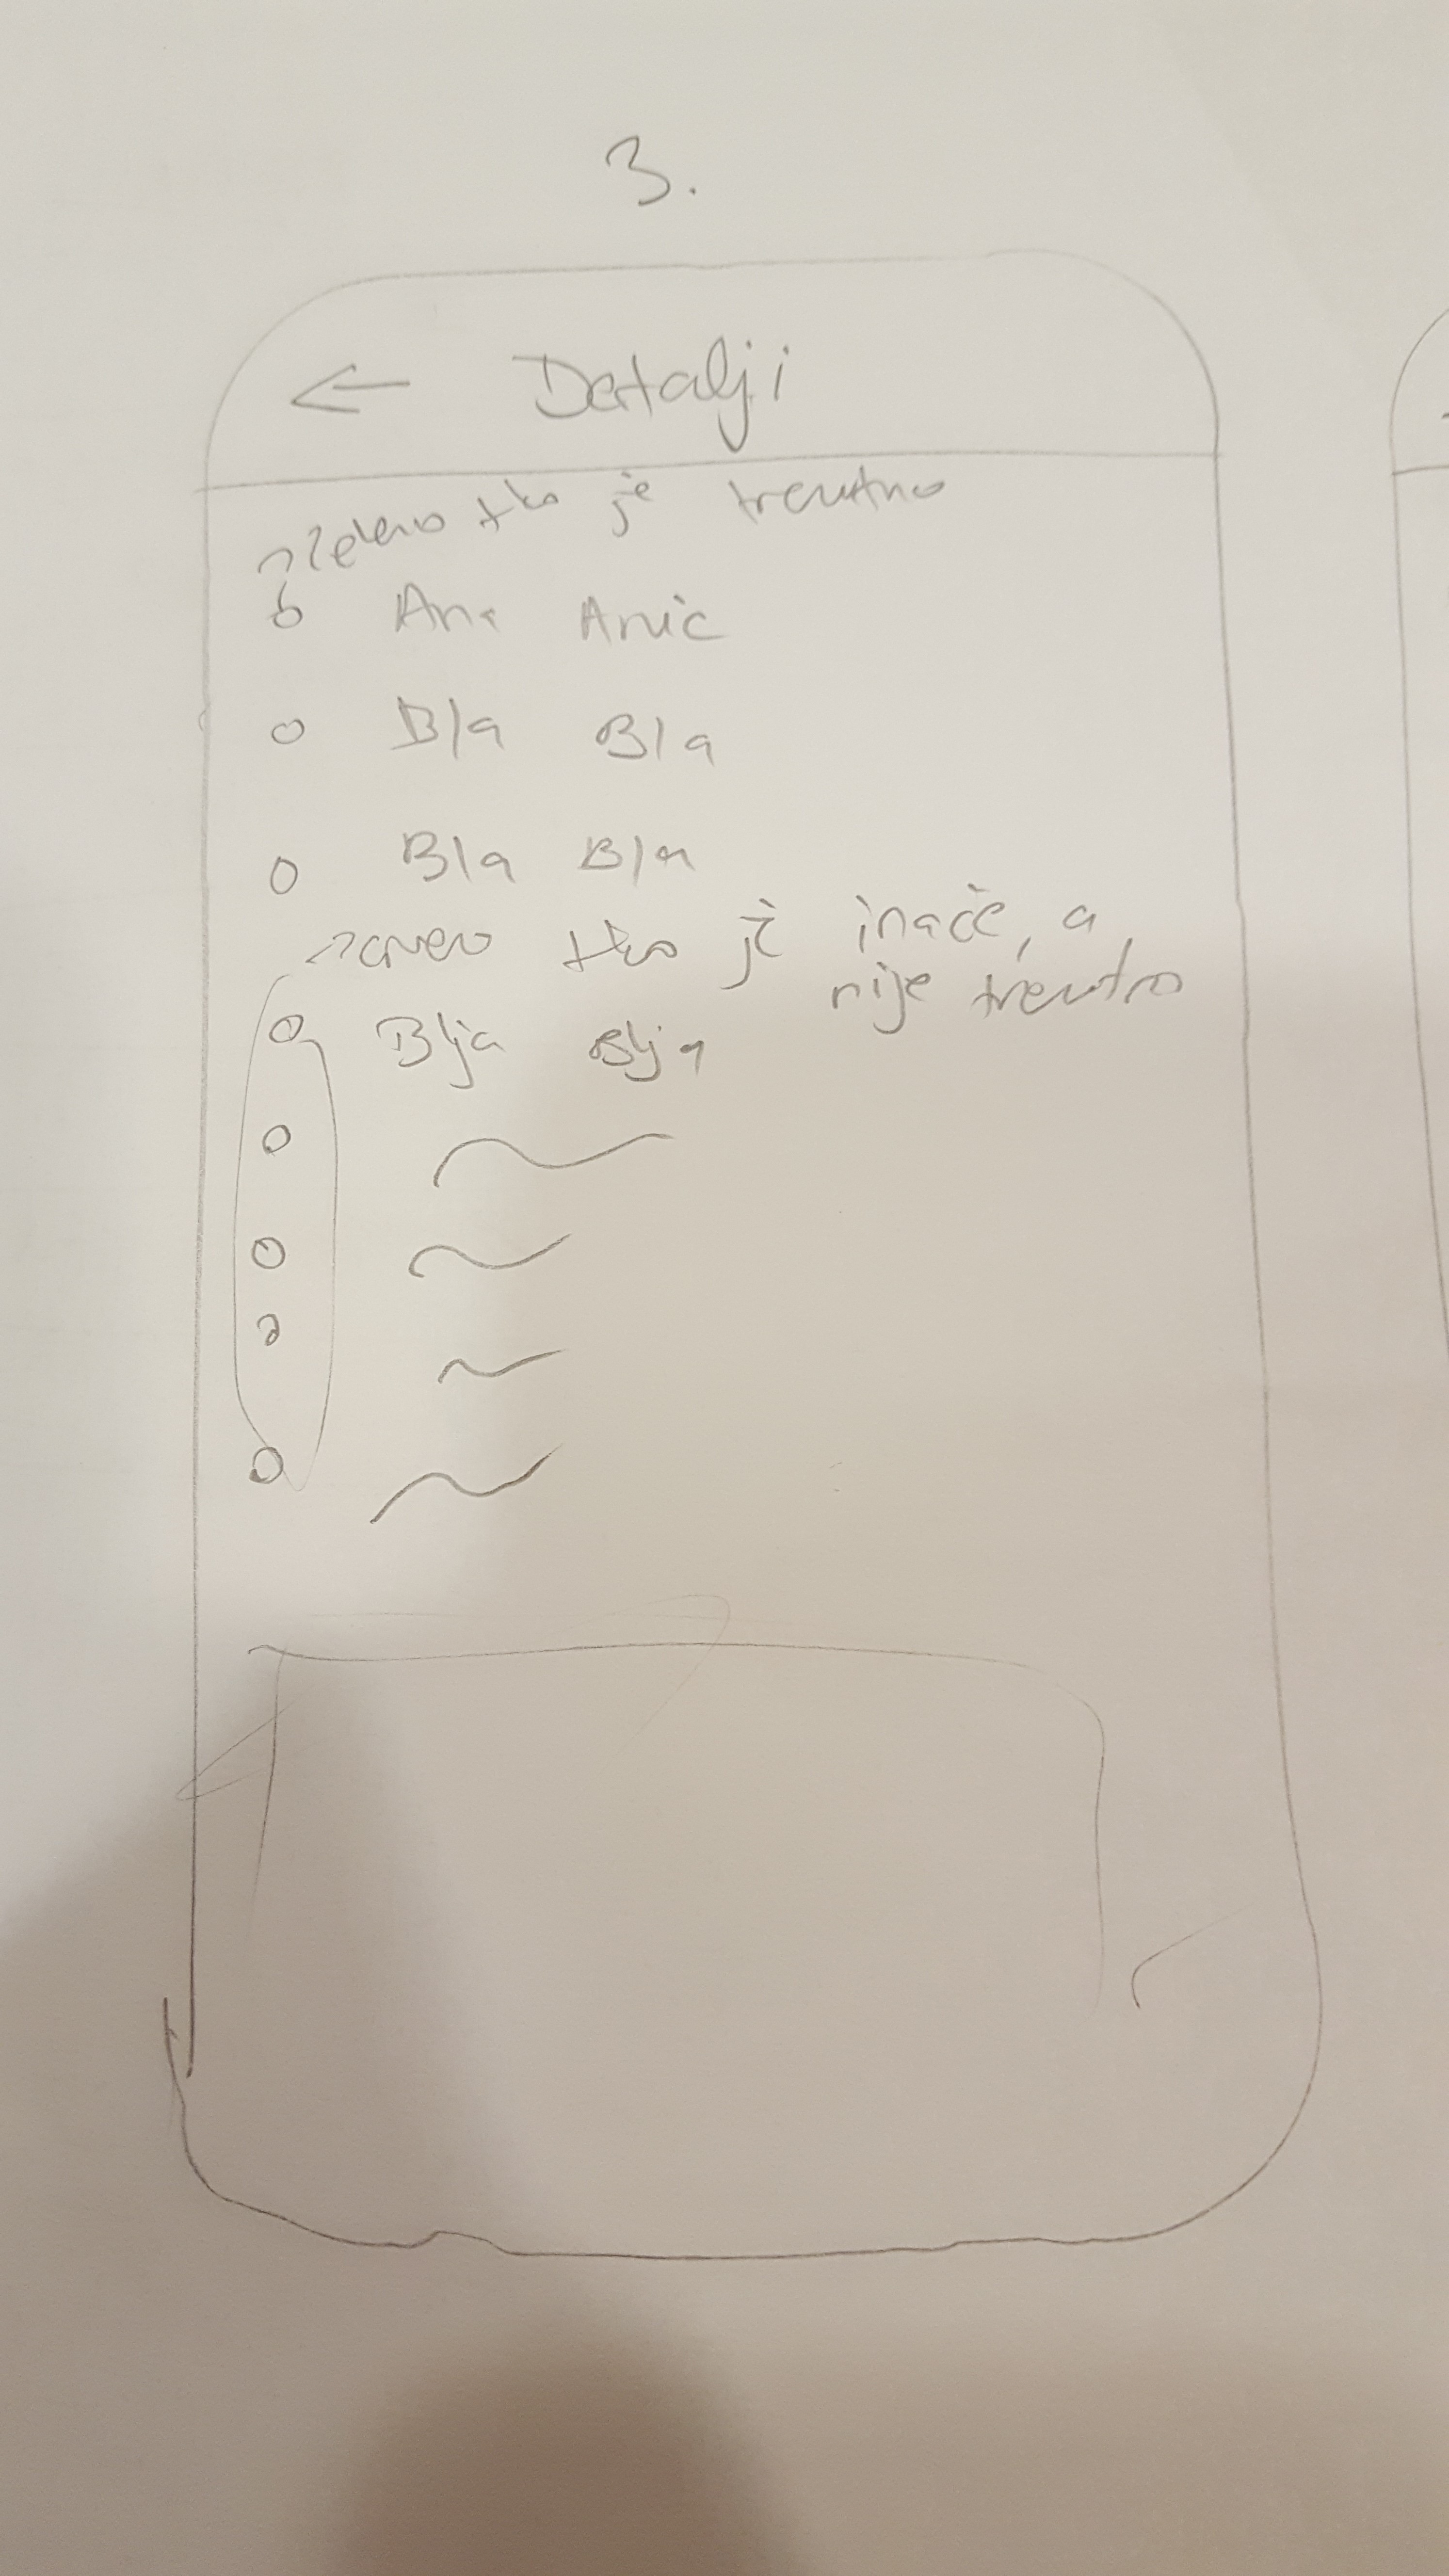 3.
← Detalji
zeleno tko je trenutno
Ana Anić
Bla Bla
Bla Bla
crveno tko je inače, a
nije trenutno
Blja Blja